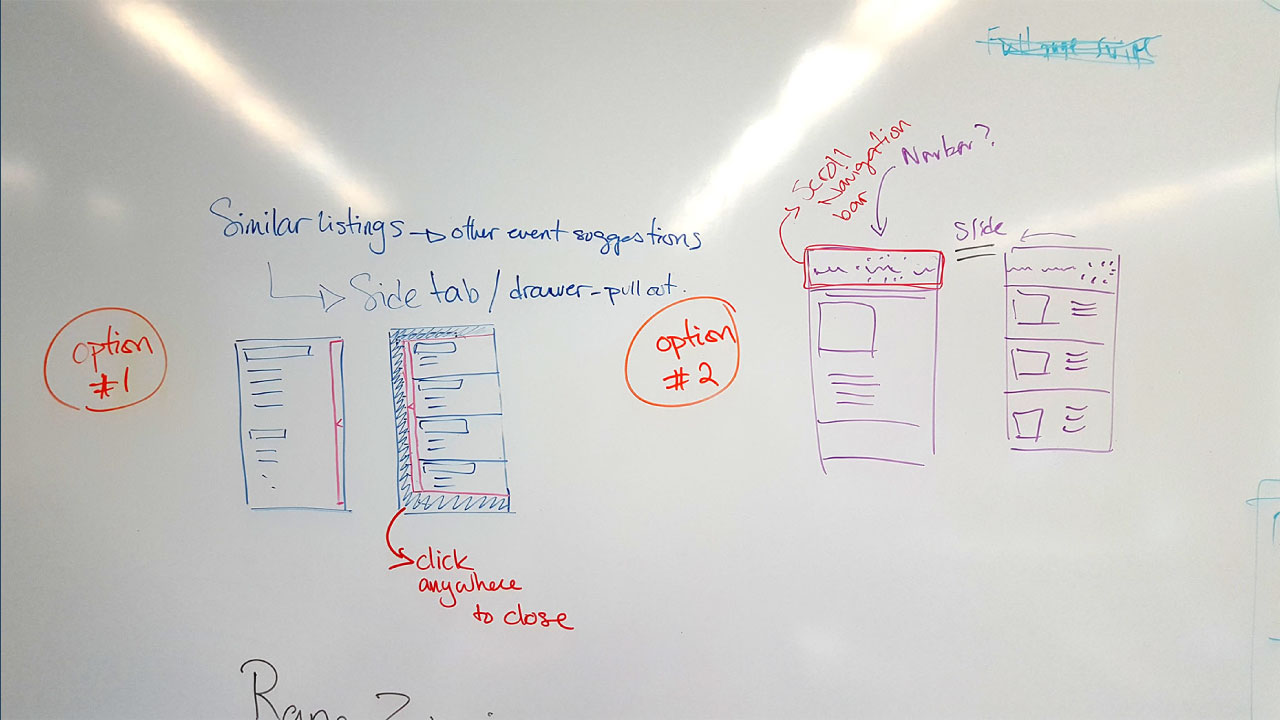 Full page swipe
Similar listings → other event suggestions
→ Side tab / drawer-pull out.
option
#1
click
anywhere
to close
option
#2
Scroll
Navigation
bar
Navbar?
Slide